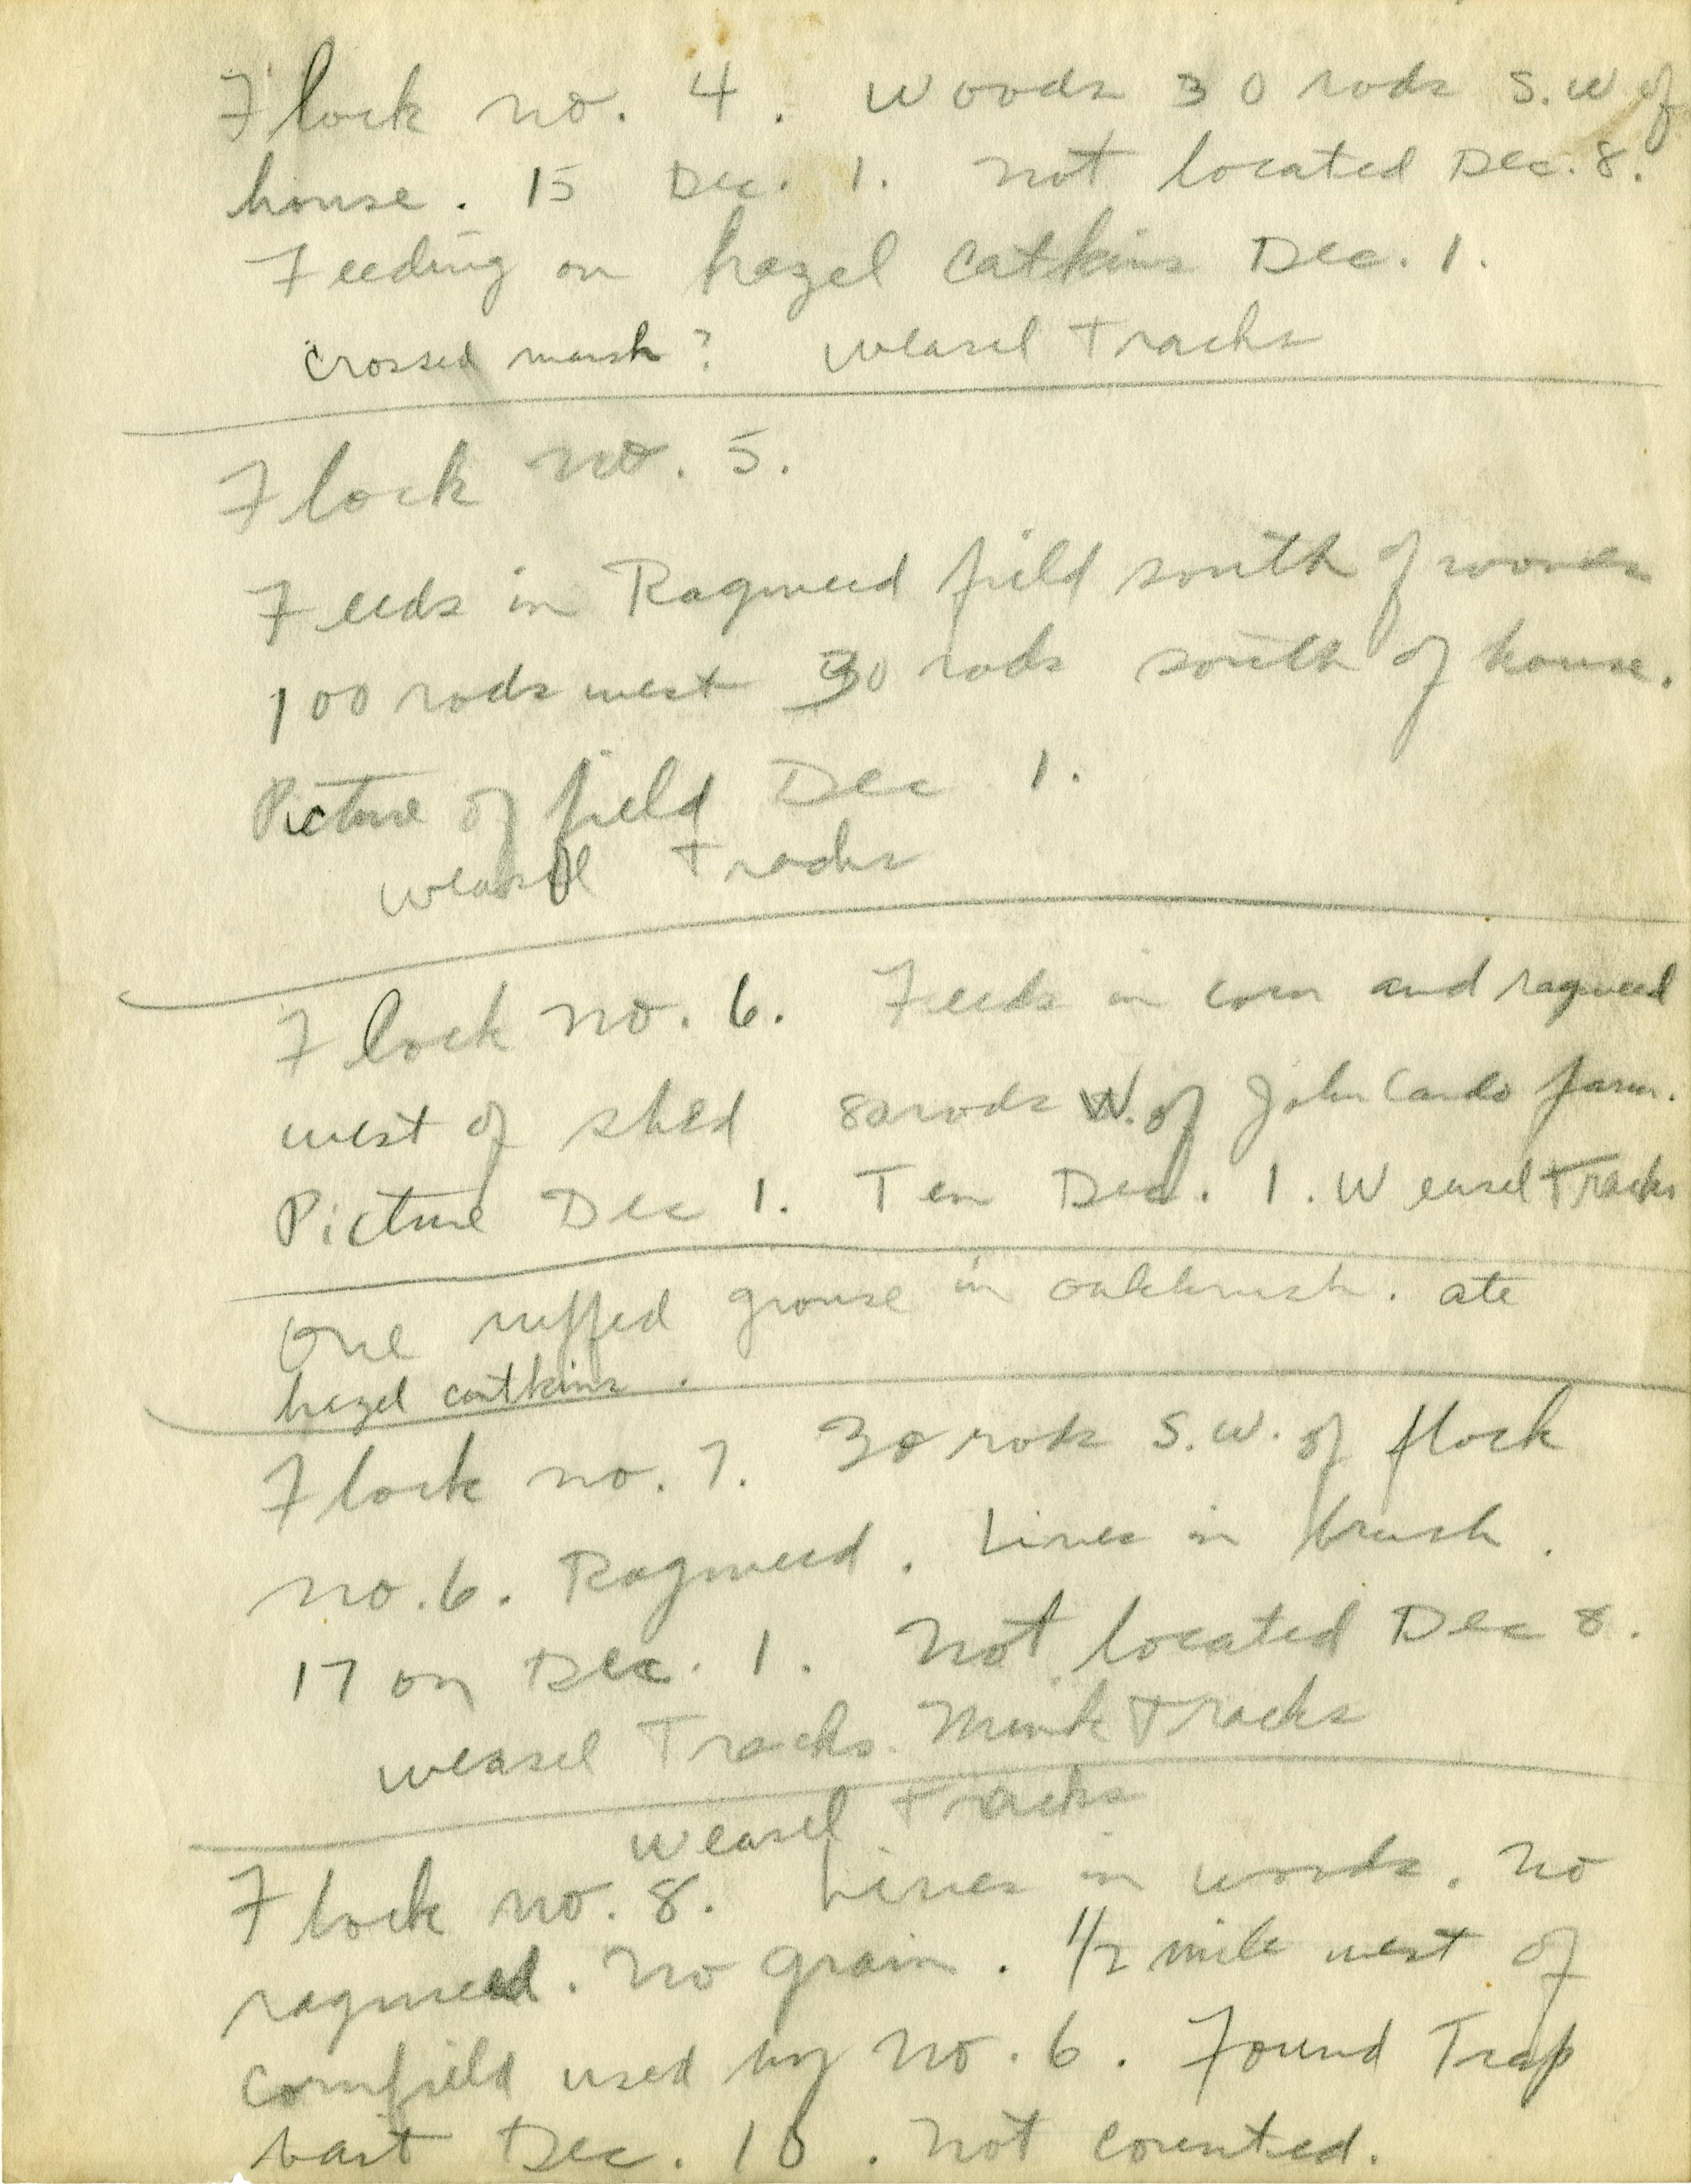 Flock no. 4. Woods 30 rods S.W of
house. 15 Dec. 1. not located Dec. 8.
Feeding on hazel catkins Dec. 1.
crossed marsh? weasel Tracks
Flock no. 5.
Feeds in Ragweed field south of woods
100 rods west 30 rods south of house.
Picture of field Dec 1.
weasel Tracks
Flock no. 6. Feeds in corn and ragweed
west of shed 80 rods W. of John farm.
Picture Dec 1. Ten Dec. 1. Weasel Tracks
One ruffed grouse in oakbrush. ate
hazel catkins.
Flock no. 7. 30 rods S.W. of flock
no. 6. Ragweed. Lives in brush.
17 on Dec. 1. Not located Dec 8.
weasel Tracks. Mink Tracks
weasel Tracks
Flock no. 8. Lives in woods. No
ragweed. No grain. 1/2 mile west of
cornfield used by No. 6. Found Trap
bait Dec. 10. Not counted.